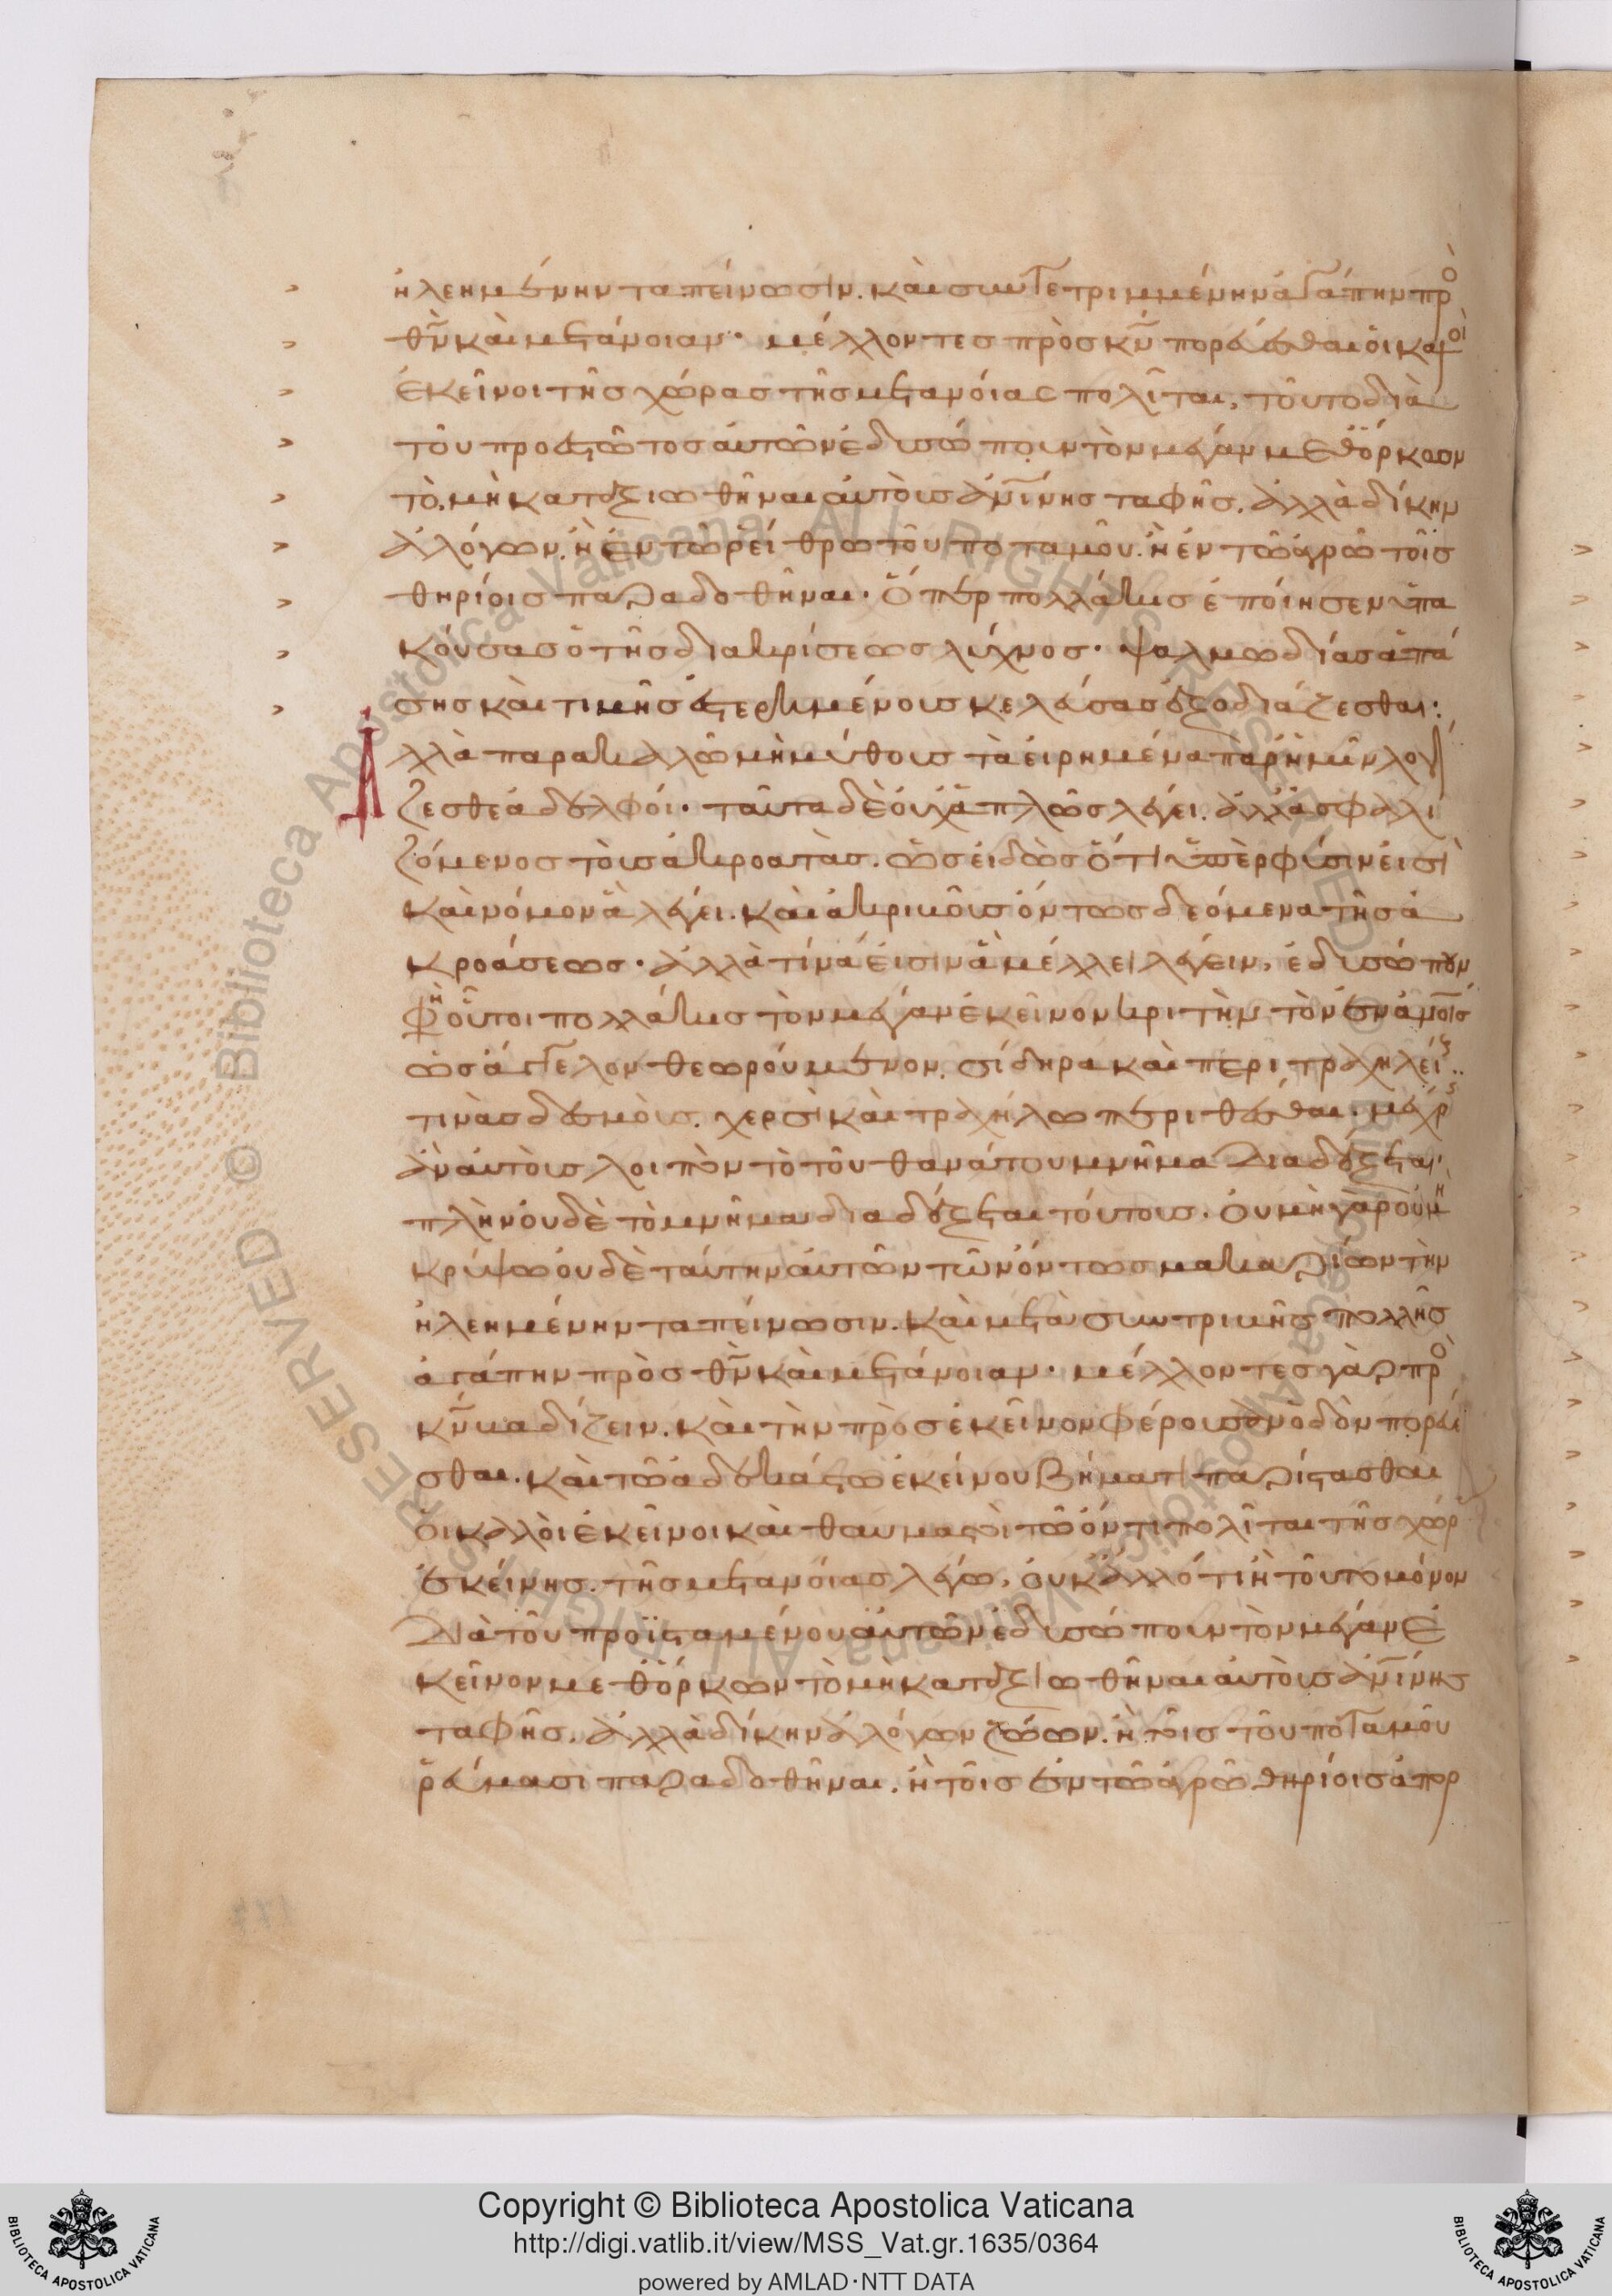 ἠλεημένην ταπείνωσιν. καὶ συντετριμμένην ἀγάπην πρὸ
θν̄ καὶ μετάνοιαν· μέλλοντες πρὸς κν̄ πορεύεσθαι οἱ καλοὶ
ἐκεῖνοι τῆς χώρας τῆς μετανοίας πολῖται, τοῦτο διὰ
τοῦ προεστῶτος αὐτῶν ἐδυσώπουν τὸν μέγαν μεθόρκων
τὸ μὴ καταξιωθῆναι αὐτοὺς ἀνίνης ταφῆς. ἀλλὰ δίκην
ἀλόγων. ἢ ἐν τῶ ρείθρω τοῦ ποταμοῦ. ἢ ἐν τῶ ἀγρῶ τοῖς
θηρίοις παραδοθῆναι· ὅπερ πολλάκις ἐποίησεν ὑπα
κούσας ὁ τῆς διακρίσεως λύχνος· ψαλμωδίας ἁπά
σης καὶ τιμῆς ἐστερημένους κελεύσας ἐξοδιάζεσθαι:
Ἀλλὰ παρακαλῶ μὴ μύθους τὰ εἰρημένα παρ ἡμῶν λογί
ζεσθε ἀδελφοί· ταῦτα δὲ οὐχ ἁπλῶς λέγει. ἀλλ ἀσφαλι
ζόμενος τοὺς ἀκροατάς. ὡς εἰδὼς ὅτι ὑπὲρ φύσιν εἰσὶ
καὶ νόμον ἃ λέγει. καὶ ἀκριβοῦς ὄντως δεόμενα τῆς ἀ
κροάσεως· ἀλλὰ τίνα εἰσὶν ἃ μέλλει λέγειν, ἐδυσώπουν
φη οὗτοι πολλάκις τὸν μέγαν ἐκεῖνον κριτὴν τὸν ἐν ἀνοις
ὡς ἄγγελον θεωρούμενον. σίδηρα καὶ περιτραχηλεί
τινὰς δεσμοὺς. χερσὶ καὶ τραχήλω περιθέσθαι. μέχρις
ἂν αὐτοὺς λοιπὸν τὸ τοῦ θανάτου μνῆμα διαδέξεται·
πλὴν οὐδὲ τὸ μνῆμα διαδέξεται τούτους. οὐ μὴ γὰρ οὐ μὴ
κρύψω οὐδὲ ταύτην αὐτῶν τῶν ὄντως μακαρίων τὴν
ἠλεημένην ταπείνωσιν. καὶ μετὰ συντριβῆς πολλῆς
ἀγάπην πρὸς θν̄ καὶ μετάνοιαν· μέλλοντες γὰρ πρὸ
κν̄ βαδίζειν. καὶ τὴν πρὸς ἐκεῖνον φέρουσαν ὁδὸν πορεύε
σθαι. καὶ τῶ ἀδεκάστω ἐκείνου βήματι παρίστασθαι
οἱ καλοὶ ἐκεῖνοι καὶ θαυμαστοὶ τῶ ὄντι πολῖται τῆς χώρ
ἐκείνης. τῆς μετανοίας λέγω, οὐκ ἄλλό τι ἢ τοῦτο μόνον
διὰ τοῦ προϊσταμένου αὐτῶν ἐδυσώπουν τὸν μέγαν ἐ
κεῖνον μεθόρκων τὸ μὴ καταξιωθῆναι αὐτοὺς ἀνίνης
ταφῆς. ἀλλὰ δίκην ἀλόγων ζώων. ἢ τοῖς τοῦ ποταμοῦ
ῥεύμασι παραδοθῆναι. ἢ τοῖς ἐν τῶ ἀγρῶ θηρίοις ἅπερ
Copyright © Biblioteca Apostolica Vaticana
http://digi.vatlib.it/view/MSS_Vat.gr.1635/0364
powered by AMLAD·NTT DATA